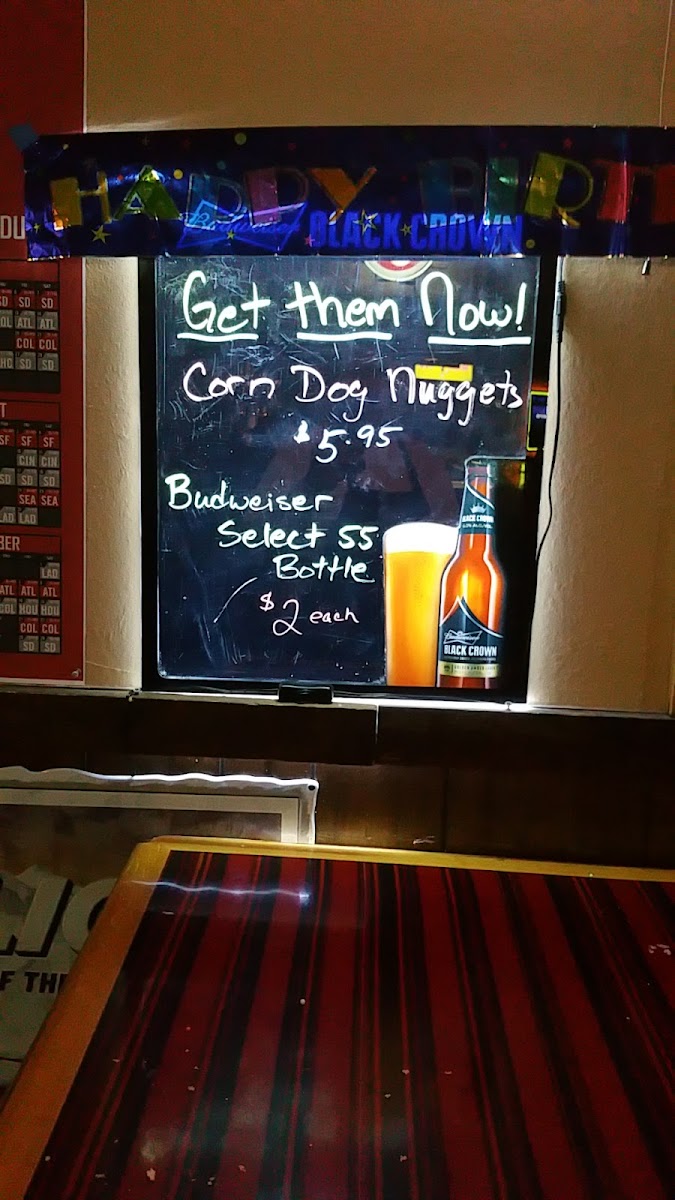 HAPPY BIRT
Budweiser BLACK CROWN
Get them Now!
Corn Dog Nuggets
$5.95
Budweiser
Select 55
Bottle
$2 each
BLACK CROWN
Budweiser
BLACK CROWN
DU
SD SD SD
ATL ATL
COL COL
SD SD
SF SF SF
CIN CIN
SD SD SD
SEA SEA
LAD LAD
BER
LAD
ATL ATL ATL
COL HOU HOU
COL COL
SD SD
F TH